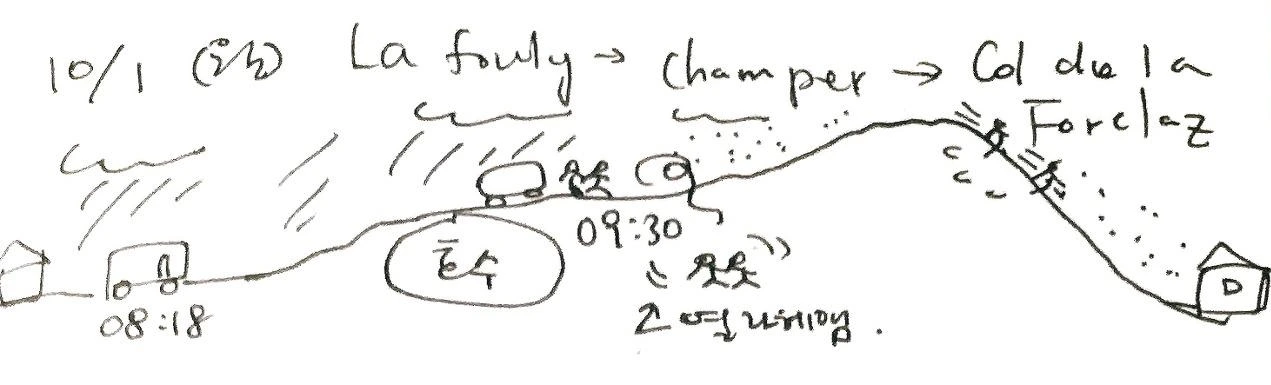 10/1 La fouly → champex → Col de la
Forclaz
08:18
호수
09:30
D